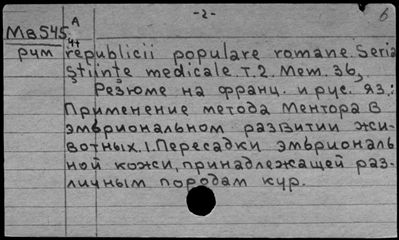 -2-
6
Мв545
A
44
рум republicii populare romane. Seria
Ştiinţe medicale. т.2. Mem. 36,
Резюме на франц. и рус. яз.:
Применение метода Ментора в
эмбриональном развитии жи-
вотных. 1. Пересадки эмбриональ
ной кожи, принадлежащей раз-
личным породам кур.